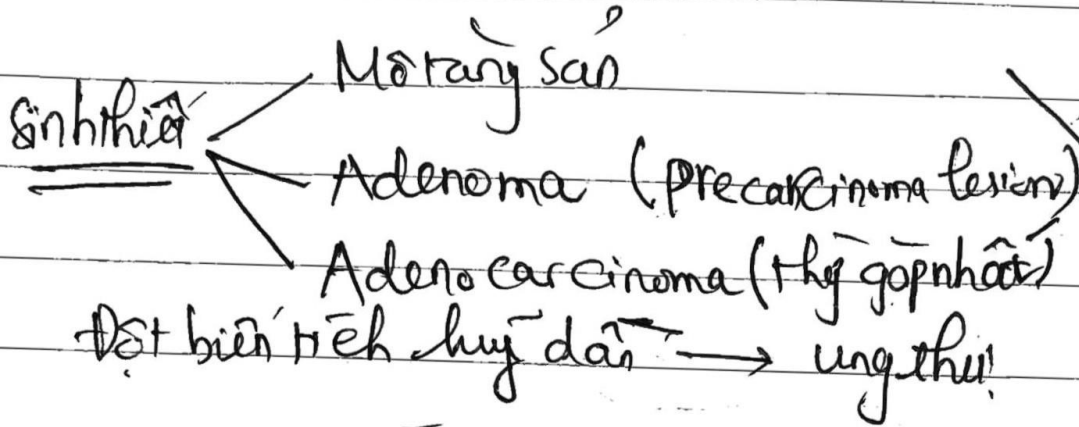 Mô tăng sản
Sinh thiết
Adenoma (precarcinoma lesion)
Adenocarcinoma (thg gặp nhất)
Đột biến tích luỹ dần → ung thư